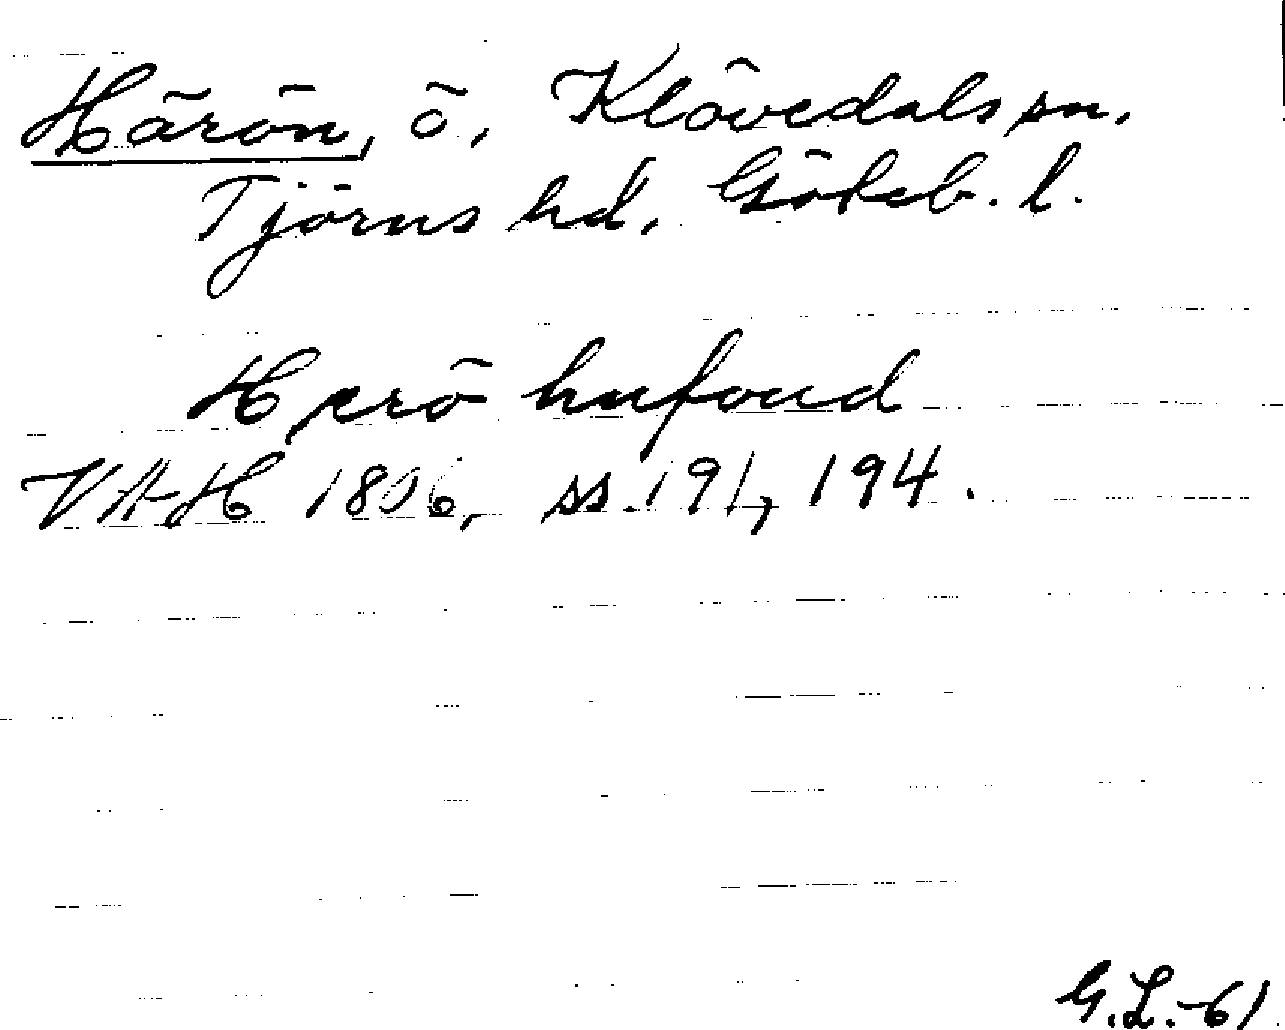 Härön, ö, Klövedals sn,
Tjörns hd, Göteb. l.
Herö hufvud
VAH 1806, ss. 191, 194.
G.L.-61